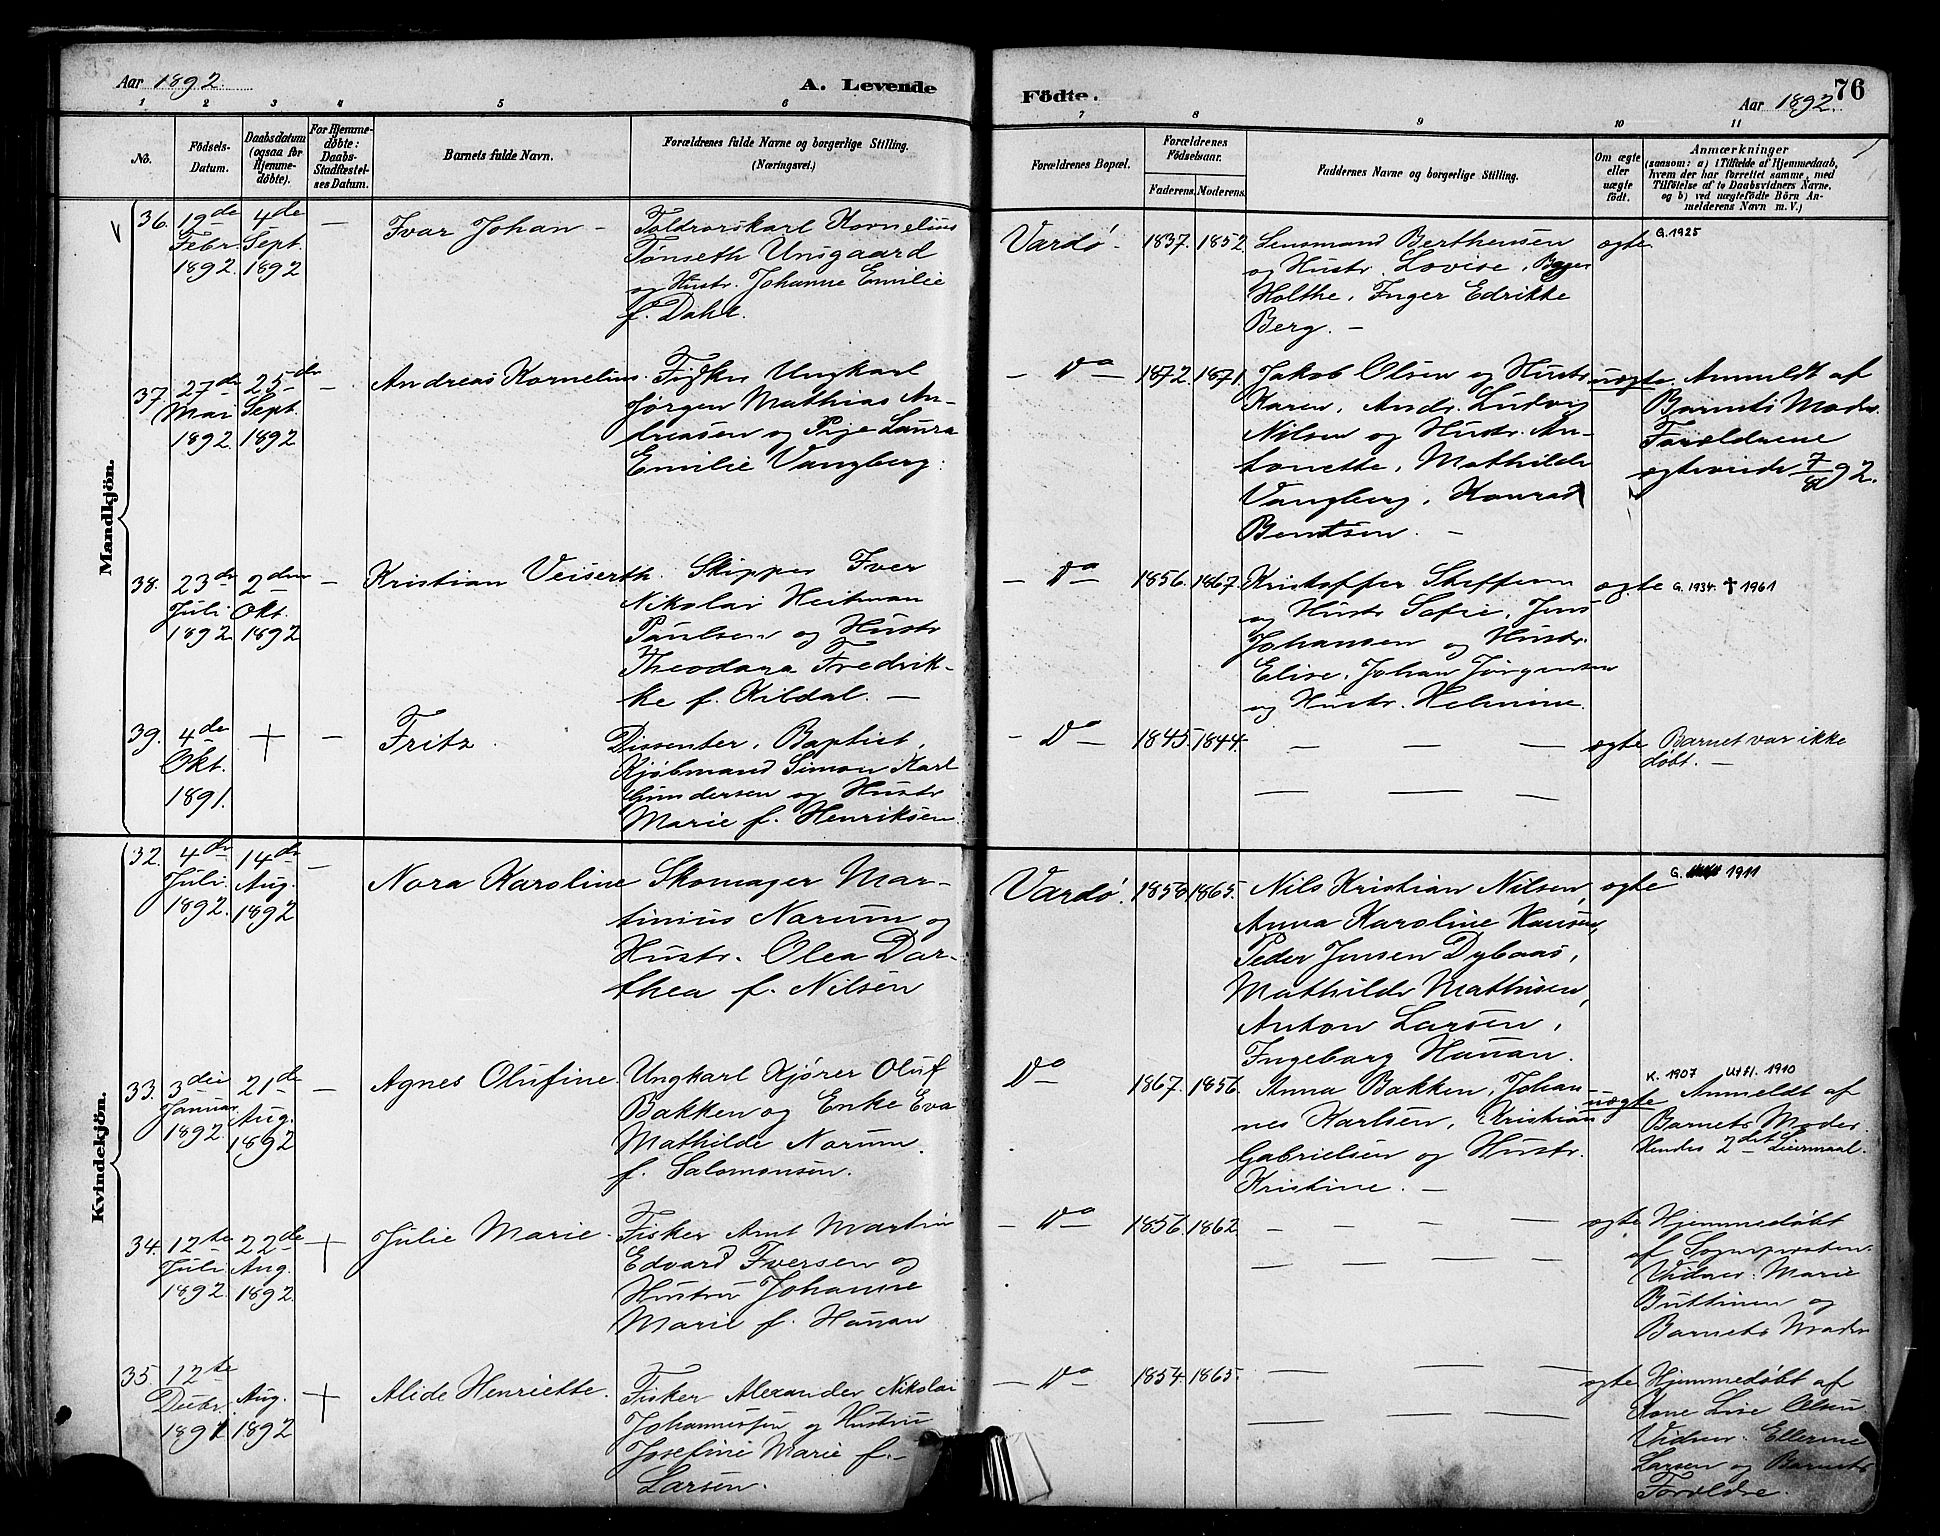 Aar 1892.
A. Levende
Födte.
76
Aar 1892.
1 2 3 4 5 6 7 8 9 10 11
No.
Födsels-
Datum.
Daabsdatum
(ogsaa for
Hjemme-
døbte).
For Hjemme-
døbte:
Daabs-
Stadfæstel-
ses Datum.
Barnets fulde Navn.
Forældrenes fulde Navne og borgerlige Stilling.
(Næringsvei.)
Forældrenes Bopæl.
Forældrenes
Födselsaar.
Faderens. Moderens.
Faddernes Navne og borgerlige Stilling.
Om ægte
eller
uægte
födt.
Anmærkninger
(saasom: a) i Tilfælde af Hjemmedaab,
hvem der har forrettet samme, med
Tilföielse af to Daabsvidners Navne,
og b) ved uægtefödte Börn An-
melderens Navn m. V.)
Mandkjön.
36.
19de
Febr.
1892.
4de
Sept.
1892
—
Ivar Johan —
Toldrorskarl Kornelius
Tønseth Unsgaard
og Hustr. Johanne Emilie
f. Dahl.
Vardø.
1837. 1852.
Lensmand Berthensen
og Hustr. Lovise,
Holthe, Inger Edrikke
Berg. —
ægte
G. 1925
37.
27de
Mai
1892.
25de
Sept.
1892
—
Andreas Kornelius.
Fisker Ungkarl
Jørgen Mathias An-
dreasen og Pige Laura
Emilie Vangberg.
— Do —
1872. 1871.
Jakob Olsen og Hustr.
Karen, Andr. Ludvig
Nilsen og Hustr. An-
tonette, Mathilde
Vangberg, Konrad
Berntsen. —
uægte.
Anmeldt af
Barnets Moder.
Forældrene
ægteviede 7/8 92.
38.
23de
Juli
1892
2den
Okt.
1892
—
Kristian Veiserth.
Skipper Iver
Nikolai Heitman
Paulsen og Hustr.
Theodora Fredrik-
ke f. Kildal. —
— Do —
1856. 1867.
Kristoffer Steffensen
og Hustr. Sofie, Jens
Johansen og Hustr.
Elise, Johan Jørgensen
og Hustr. Helmine.
ægte
G. 1934. † 1961
39.
4de
Okt.
1891.
+
—
Fritz.
Dissenter, Baptist,
Kjøbmand Simon Karl
Gundersen og Hustr.
Marie f. Henriksen.
— Do —
1845. 1844.
— — —
— — —
ægte
Barnet var ikke
døbt. —
Kvindekjön.
32.
4de
Juli.
1892.
14de
Aug.
1892
—
Nora Karoline
Skomager Mar-
tinius Narum og
Hustr. Olea Dor-
thea f. Nilsen
Vardø.
1858. 1865.
Nils Kristian Nilsen,
Anna Karoline Hansen,
Peder Jensen Dybaas,
Mathilde Mathisen,
Anton Larsen,
Ingeborg Hauan.
ægte
G. 1911
33.
3die
Januar
1892.
21de
Aug.
1892
—
Agnes Olufine.
Ungkarl Kjører Oluf
Bakken og Enke Eva
Mathilde Narum.
f. Salomonsen.
Do —
1867. 1856.
Anna Bakken, Johan-
nes Karlsen, Kristian
Gabrielsen og Hustr.
Kristine. —
uægte
K. 1907 Utfl. 1910
Anmeldt af
Barnets Moder.
Hendes 2det Leiermaal.
34.
12te
Juli.
1892.
22de
Aug.
1892
+
Julie Marie.
Fisker Arnt Martin
Edvard Iversen og
Hustru Johanne
Marie f. Hauan
— Do —
1856. 1862.
— — — —
— — — —
ægte
Hjemmedøbt
af Sognepresten.
Vidner: Marie
og
Barnets Moder
35.
12te
Decbr.
1891
Aug.
1892
+
Alide Henriette.
Fisker Alexander Nikolai
Johannessen og Hustru
Josefine Marie f.
Larsen.
— Do —
1854. 1865.
— — — —
— — — —
ægte
Hjemmedøbt af
Kone Lise Olsen
Vidner: Ellerine
Larsen og Barnets
Forældre.